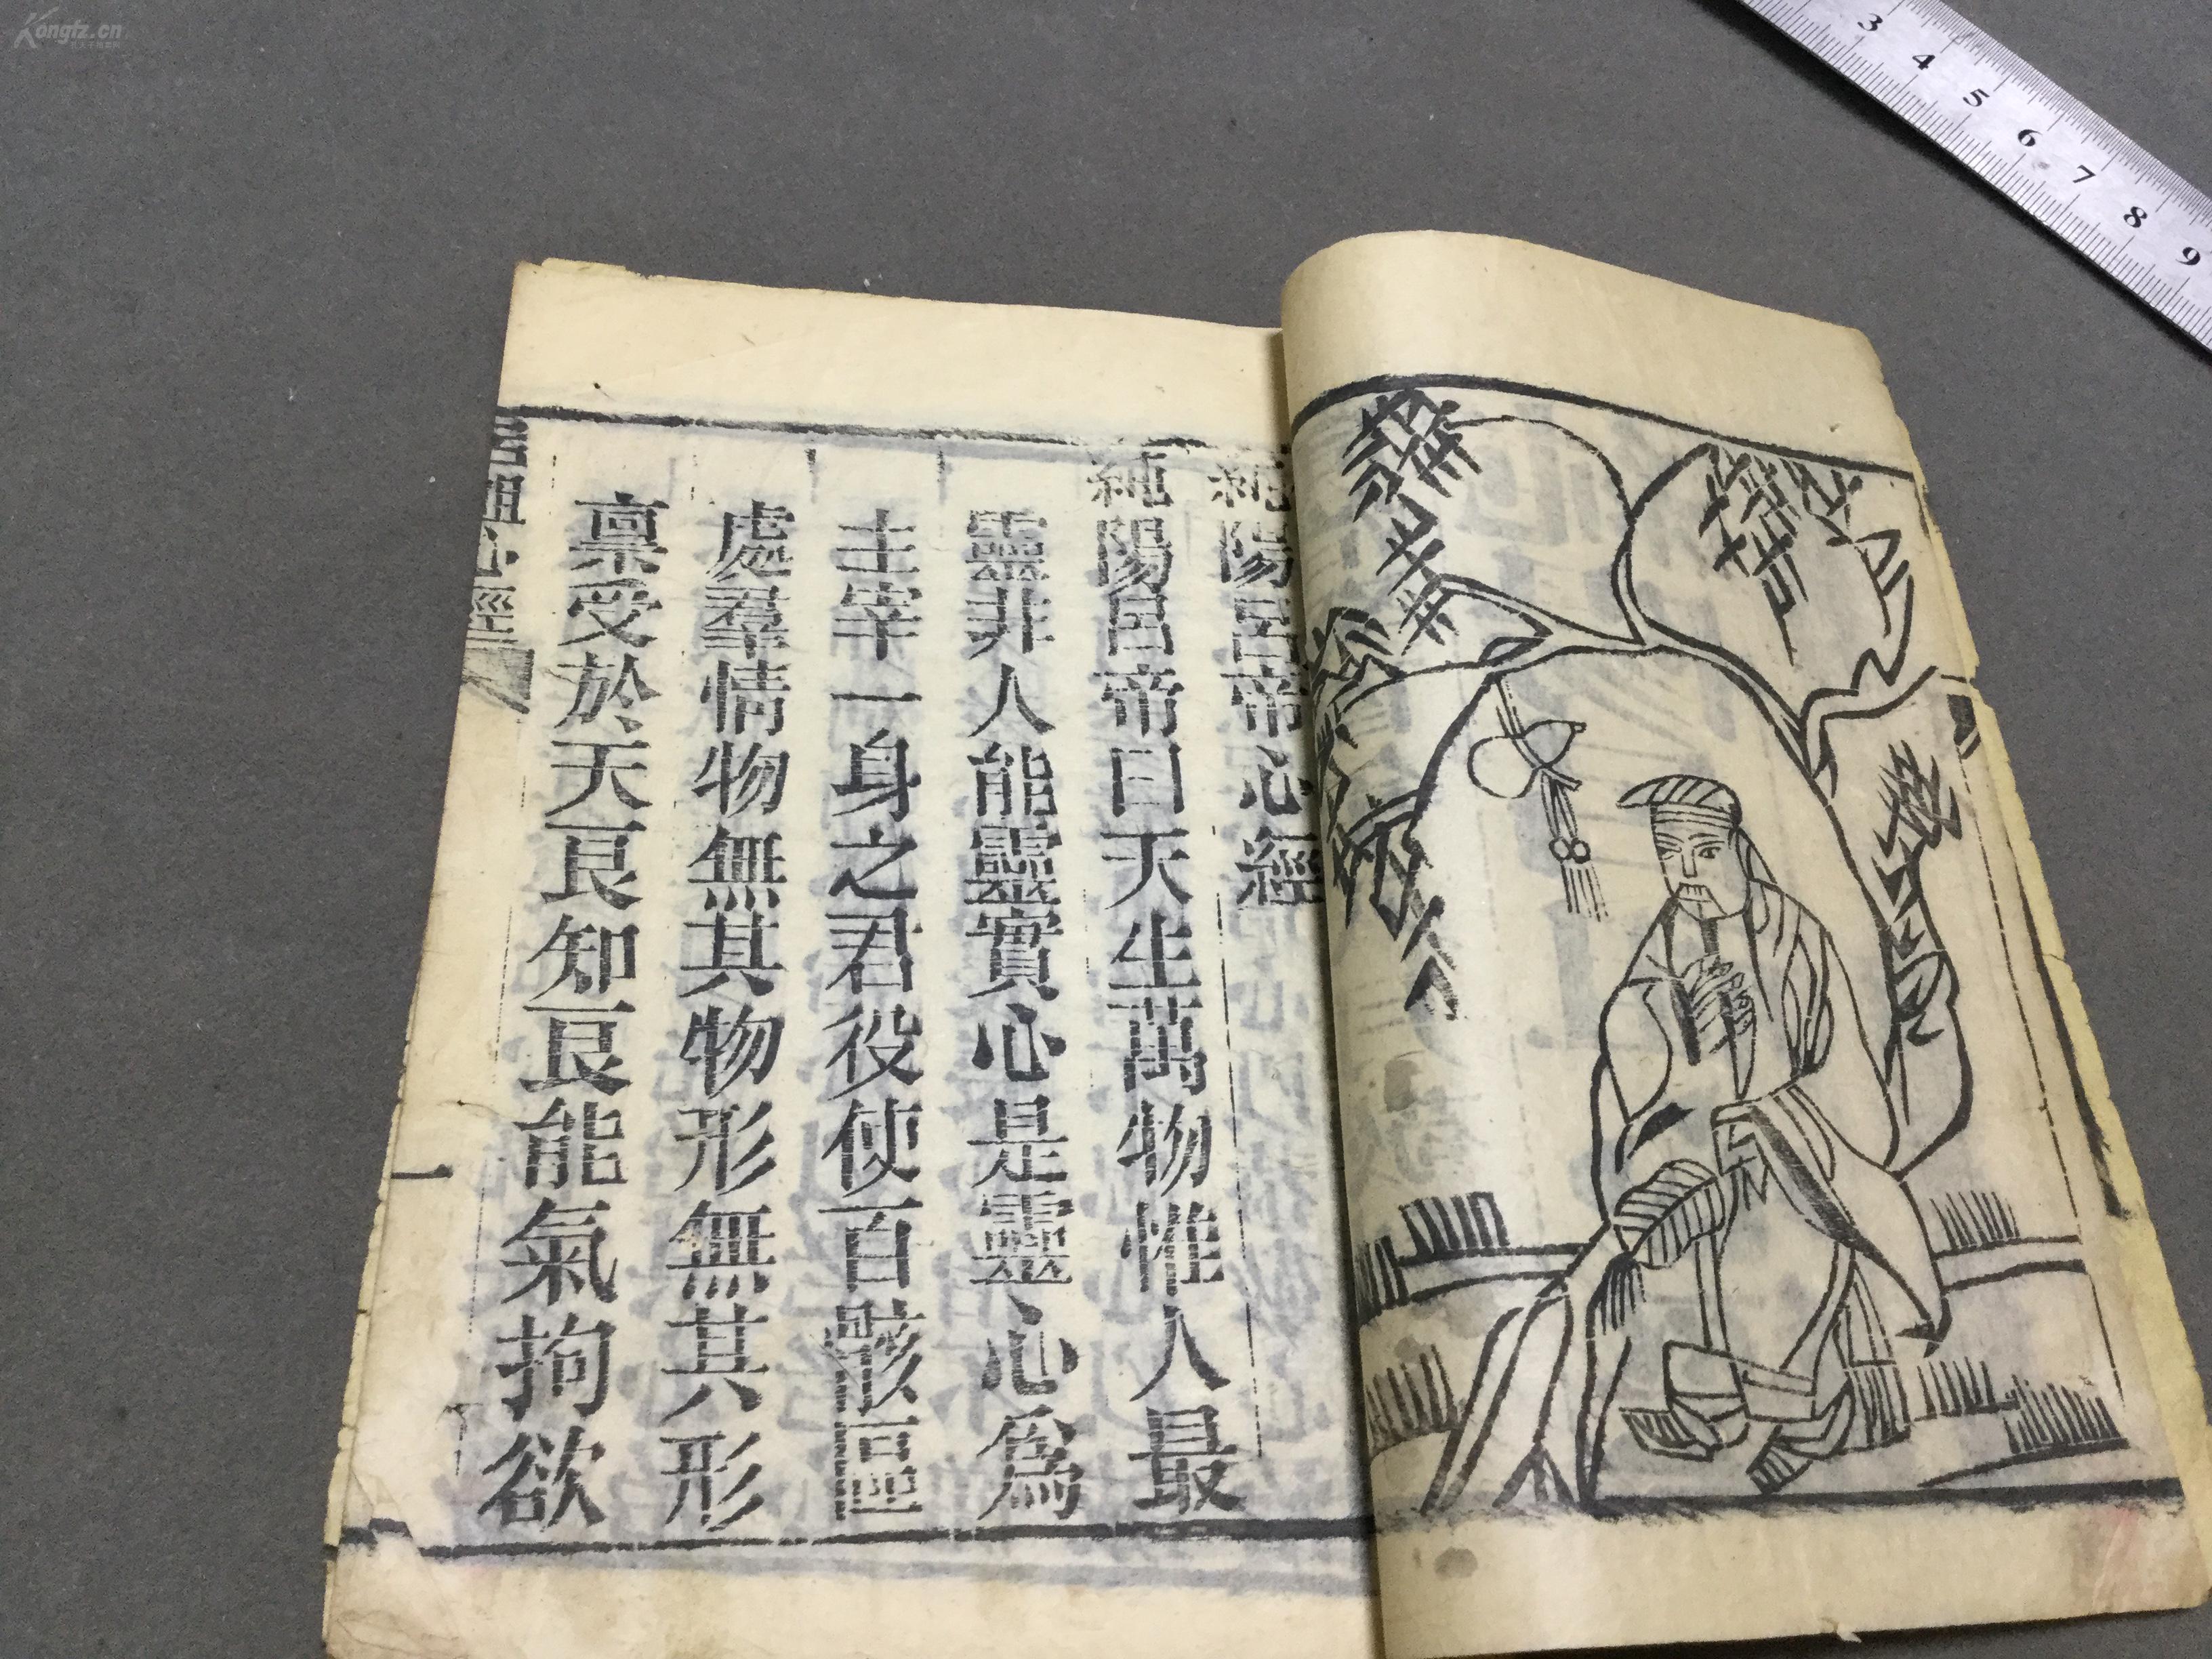 純陽呂帝心經
純陽呂帝曰天生萬物惟人最
靈非人能靈實心是靈心爲
主宰一身之君役使百骸區
處羣情物無其物形無其形
稟受於天良知良能氣拘欲
呂祖心經
一
3 4 5 6 7 8 9
Kongfz.cn